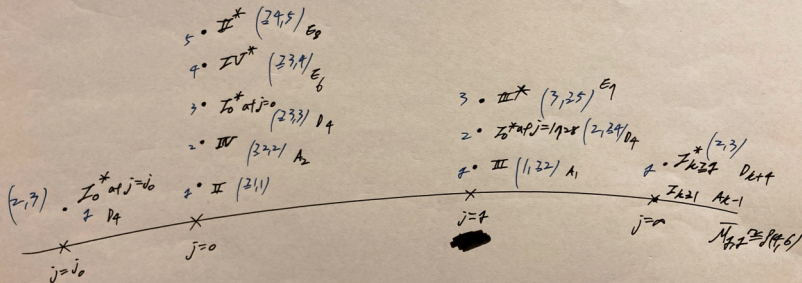 5 • II* (≥4,5) E8
4 • IV* (≥3,4) E6
3 • I0* at j=0 (≥3,3) D4
2 • IV (≥2,2) A2
1 • II (≥1,1)
j=0
(2,3) • I0* at j=j0
1 D4
j=j0
3 • III* (3,≥5) E7
2 • I0* at j=1728 (2,≥4) D4
1 • III (1,≥2) A1
j=1
1 • I*k≥1 (2,3) Dk+4
Ik≥1 Ak-1
j=∞
M̄1,1 ≅ P(4,6)